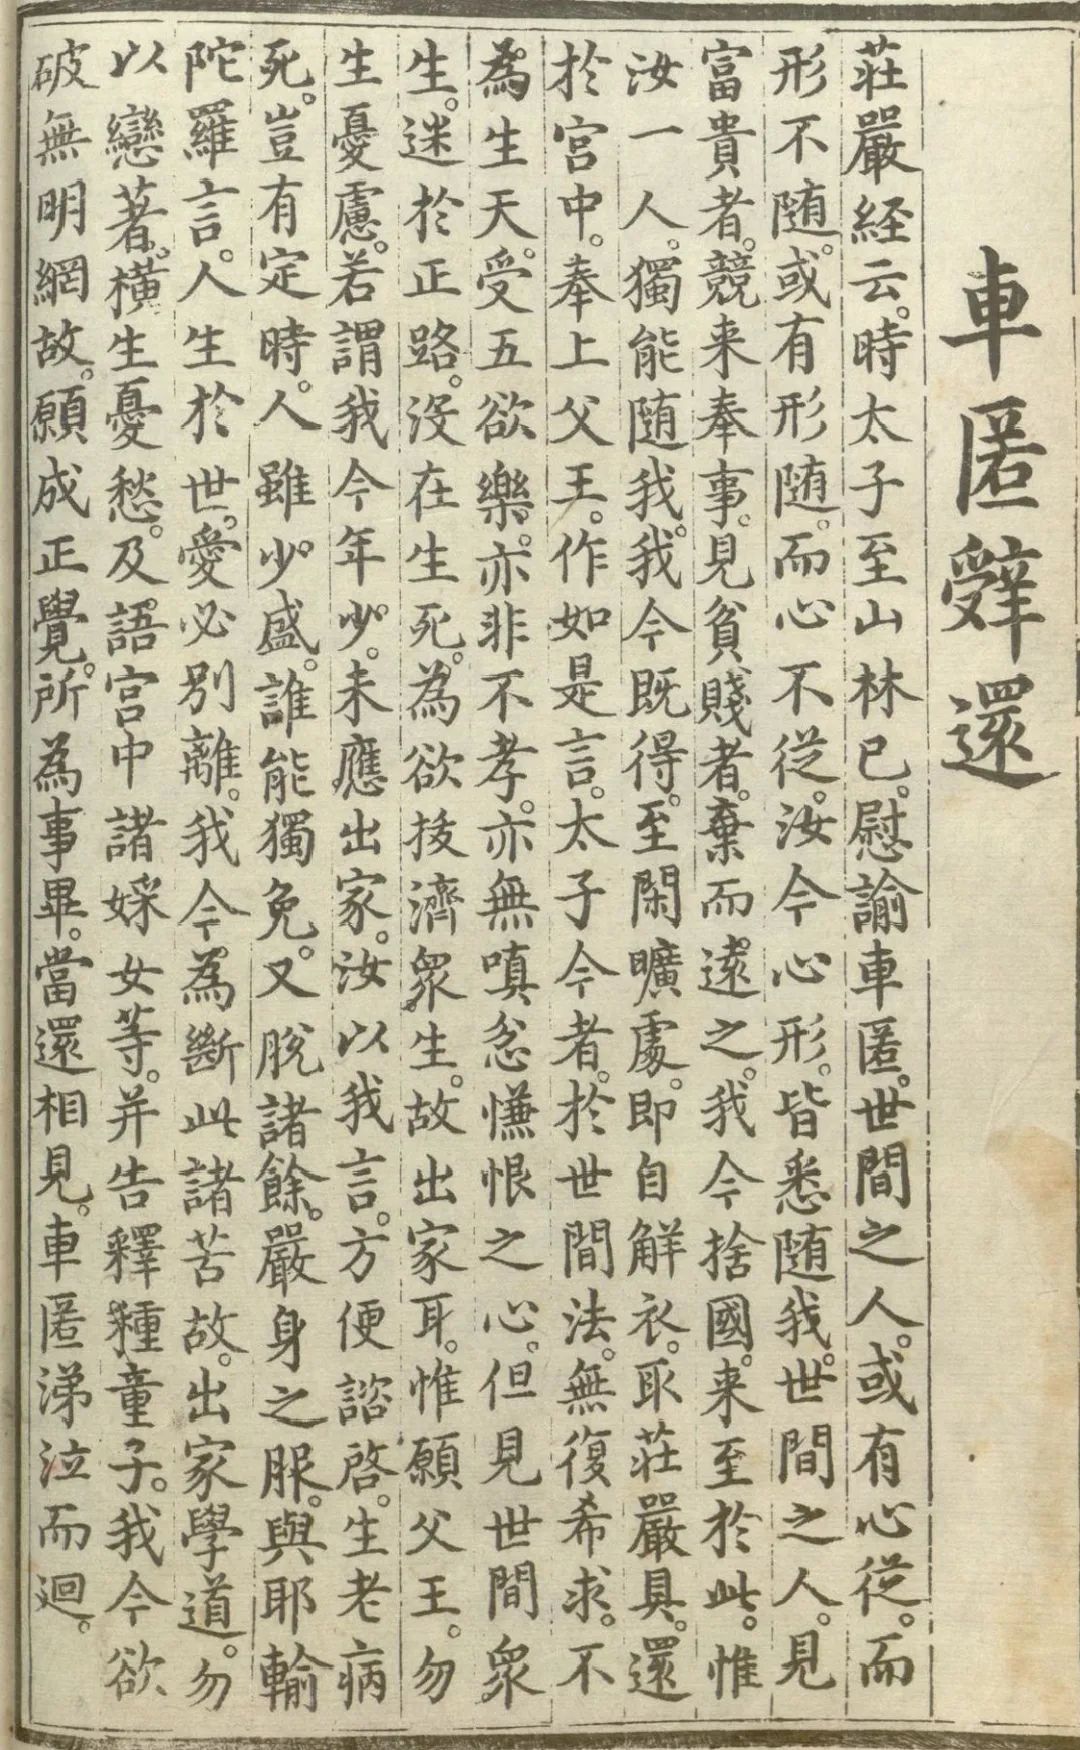 車匿辭還
莊嚴経云。時太子至山林已。慰諭車匿。世間之人。或有心従。而
形不随。或有形随。而心不従。汝今心形。皆悉随我。世間之人。見
富貴者。競来奉事。見貧賤者。棄而遠之。我今捨國。来至於此。惟
汝一人。獨能随我。我今既得。至閑曠處。即自解衣。取莊嚴具。還
於宮中。奉上父王。作如是言。太子今者。於世間法。無復希求。不
為生天。受五欲樂。亦非不孝。亦無嗔忿慊恨之心。但見世間衆
生。迷於正路。没在生死。為欲抜濟衆生。故出家耳。惟願父王。勿
生憂慮。若謂我今年少。未應出家。汝以我言。方便諮啓。生老病
死。豈有定時。人雖少盛。誰能獨免。又脫諸餘。嚴身之服。與耶輸
陀羅言。人生於世。愛必別離。我今為斷此諸苦故。出家學道。勿
以戀著。横生憂愁。及語宮中諸婇女等。并告釋種童子。我今欲
破無明網故。願成正覺。所為事畢。當還相見。車匿涕泣而迴。